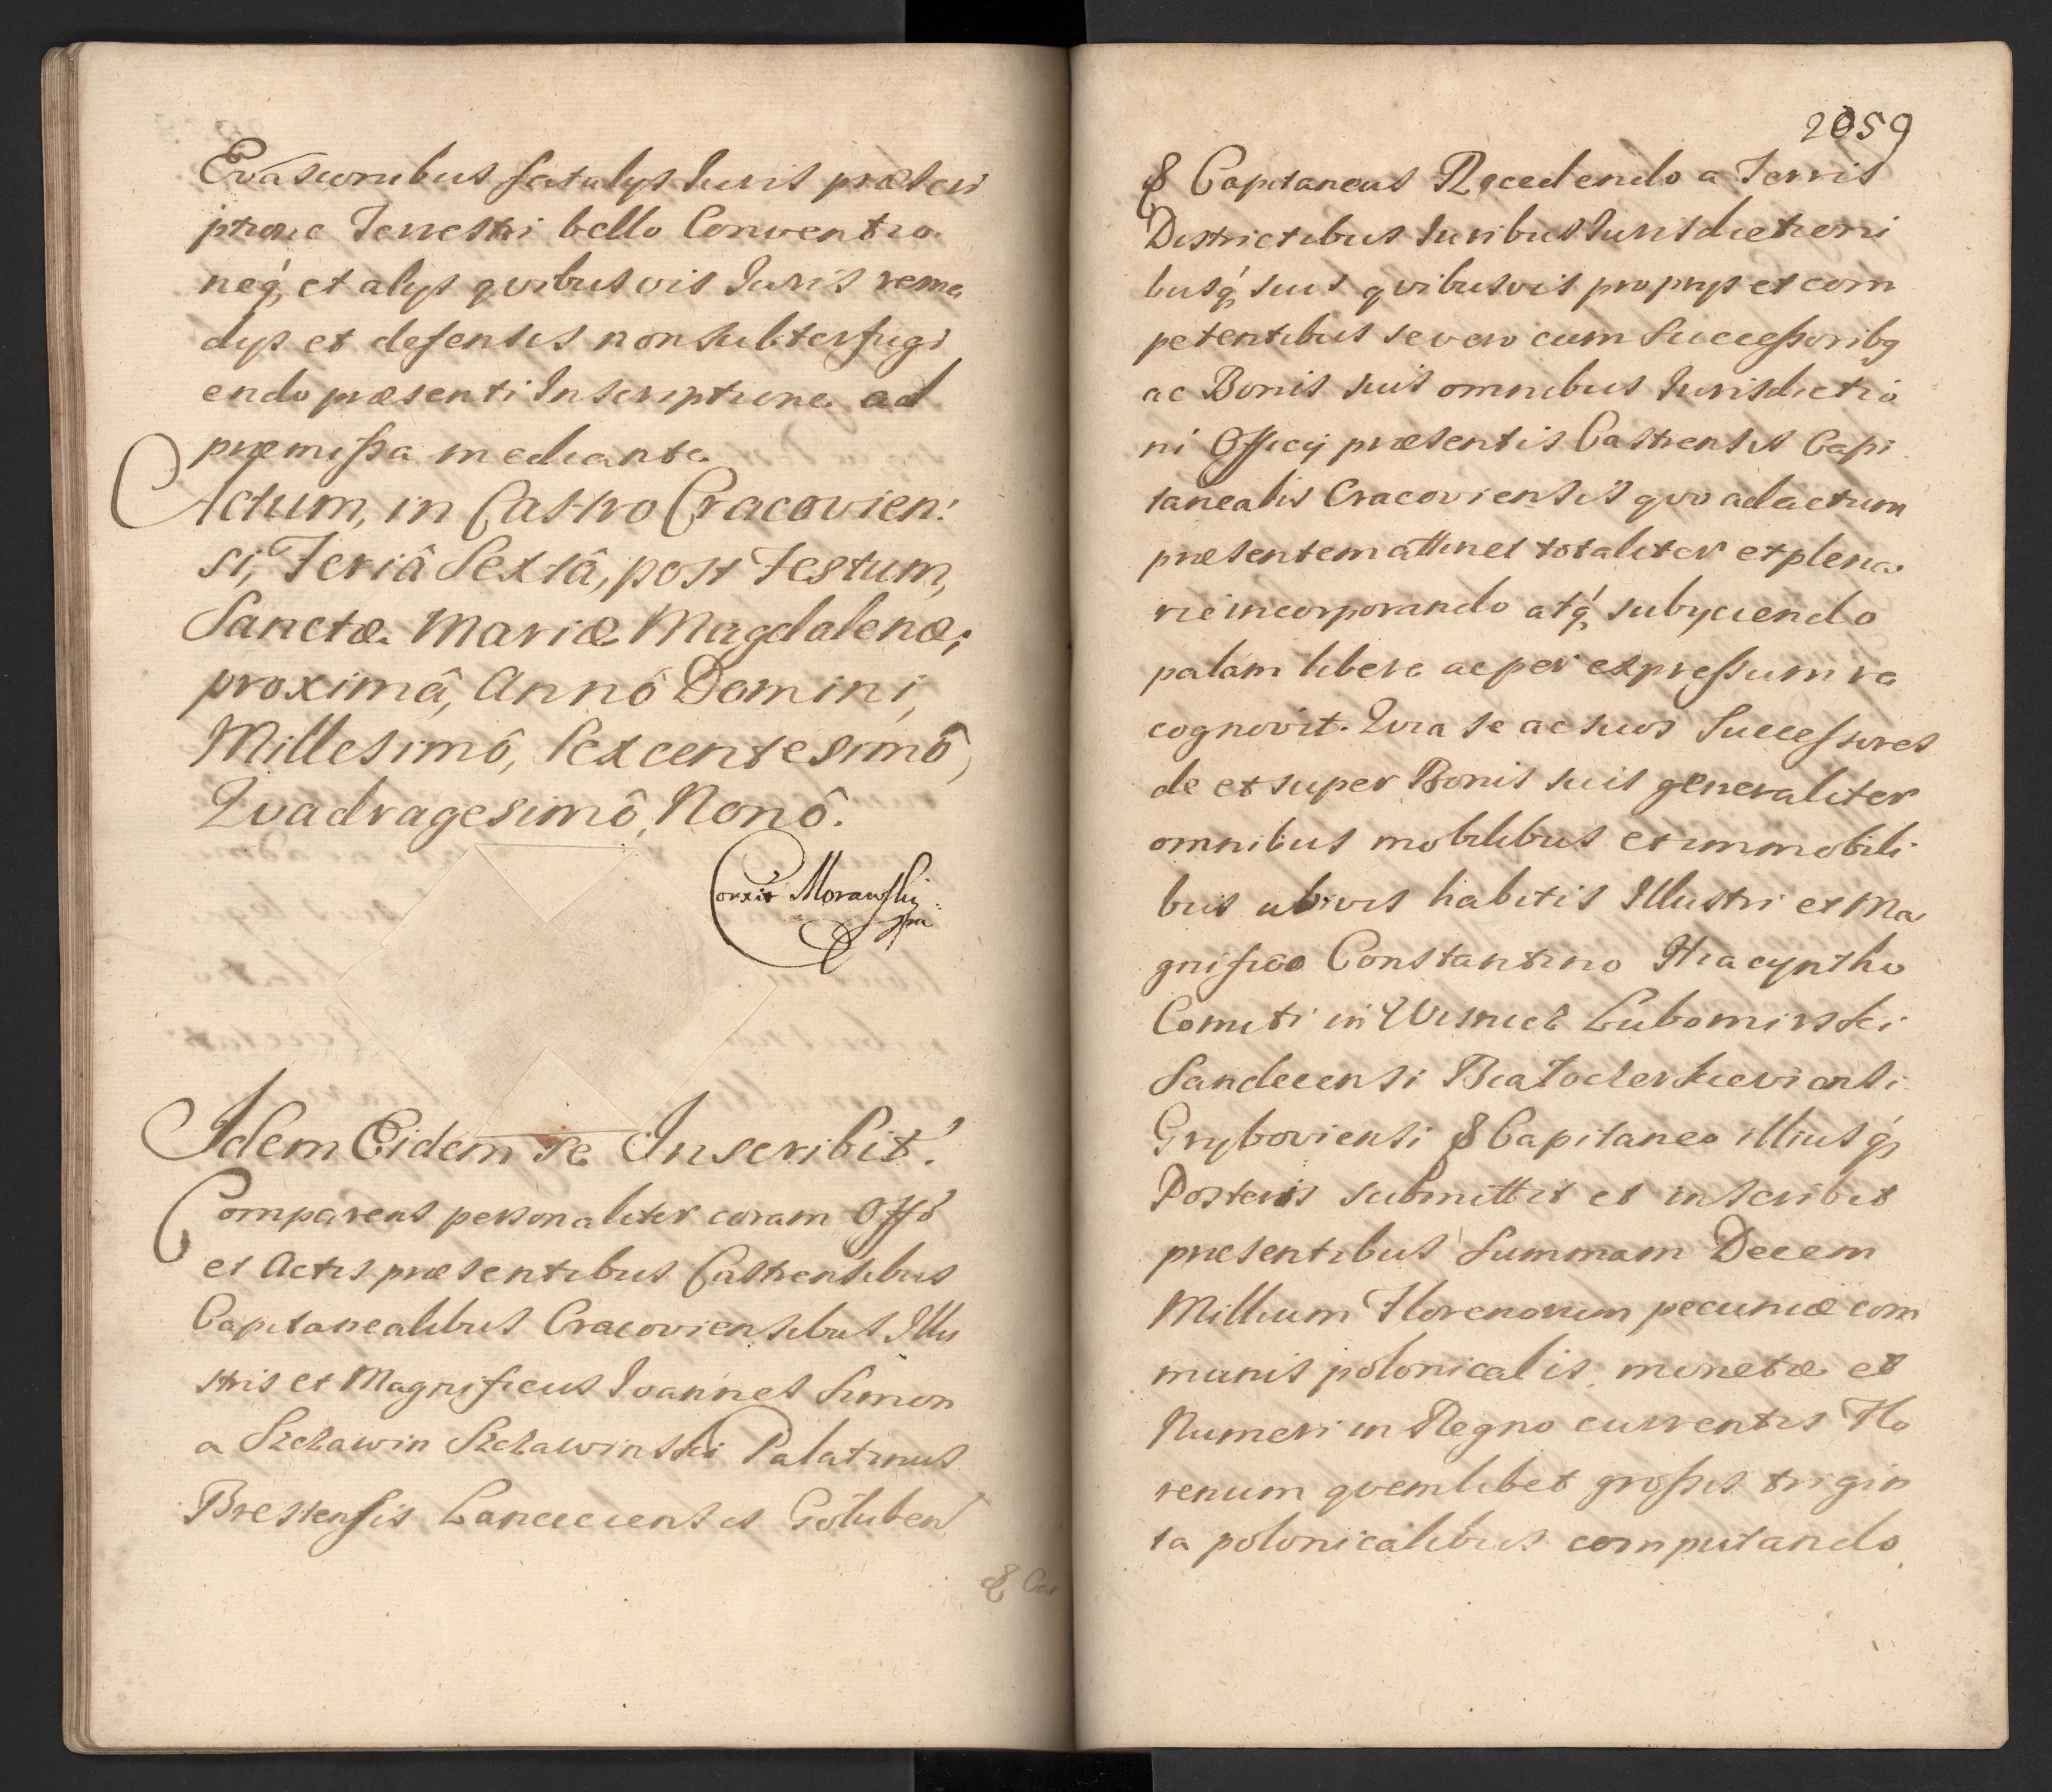 Evasionibus fatalys Iuris præscri
ptione Terrestri bello Conventio
neq́, et alys qvibusvis Iuris reme
dys et defensis non subterfugi
endo præsenti Inscriptione ad
præmissa mediante
Actum, in Castro Cracovien:
si, Feriâ Sextâ, post Festum,
Sanctæ Mariæ Magdalenæ;
proximâ, Annô Domini,
Millesimô, Sexcentesimô,
Qvadragesimô, Nonô.
Corxit Morawski
mpa
Idem Eidem se Inscribit.
Comparens personaliter coram Offo
et Actis præsentibus Castrensibus
Capitanealibus Cracoviensibus Illu
stris et Magnificus Ioannes Simon
a Szczawin Szczawinski Palatinus
Brestensis Lanciciensis Goluben
& Ca
2059
& Capitaneus Recedendo a Terris
Districtibus Iuribus Iurisdictioni
busq́ suis qvibusvis proprys et com
petentibus se vero cum Successoribq
ac Bonis suis omnibus Iurisdictio
ni Officij præsentis Castrensis Capi
tanealis Cracoviensis qvo ad actum
præsentem attinet totaliter et plena
rie incorporando atq́ subyciendo
palam libere ac per expressum re
cognovit. Qvia se ac suos Successores
de et super Bonis suis generaliter
omnibus mobilibus et immobili
bus ubivis habitis Illustri et Ma
gnifico Constantino Hiacyntho
Comiti in Wisnicz Lubomirski
Sandecensi Biatocerkieviensi
Gryboviensi & Capitaneo illiusq́
Posteris submittit et inscribit
præsentibus Summam Decem
Millium Florenorum pecuniæ com
munis polonicalis monetæ et
Numeri in Regno currentis Flo
renum qvemlibet grossis trigin
ta polonicalibus computando